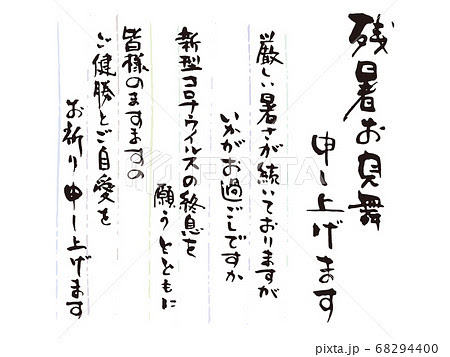 残暑お見舞
申し上げます
厳しい暑さが続いておりますが
いかがお過ごしですか
新型コロナウイルスの終息を
願うとともに
皆様のますますの
ご健勝とご自愛を
お祈り申し上げます
PIXTA
pixta.jp - 68294400